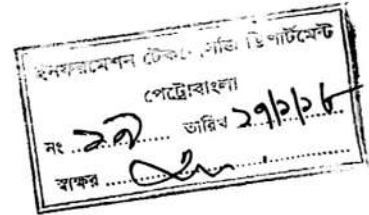 ইনফরমেশন টেকনোলজি ডিপার্টমেন্ট
পেট্রোবাংলা
নং ........... তারিখ ২৭/১/১৮
স্বাক্ষর ...........